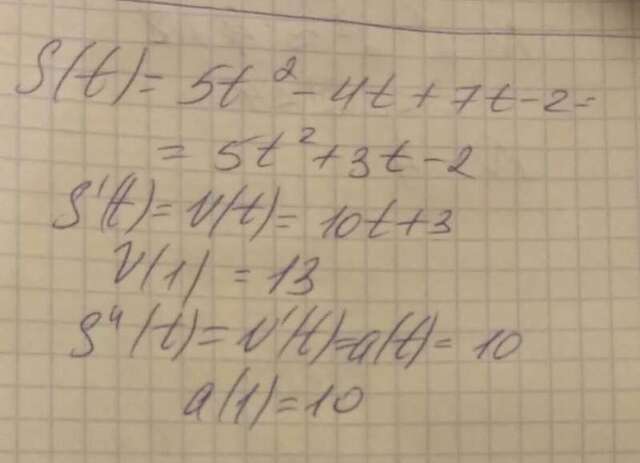 S(t) = 5t² - 4t + 7t - 2 =
= 5t² + 3t - 2
S'(t) = V(t) = 10t + 3
V(1) = 13
S"(t) = V'(t) = a(t) = 10
a(1) = 10